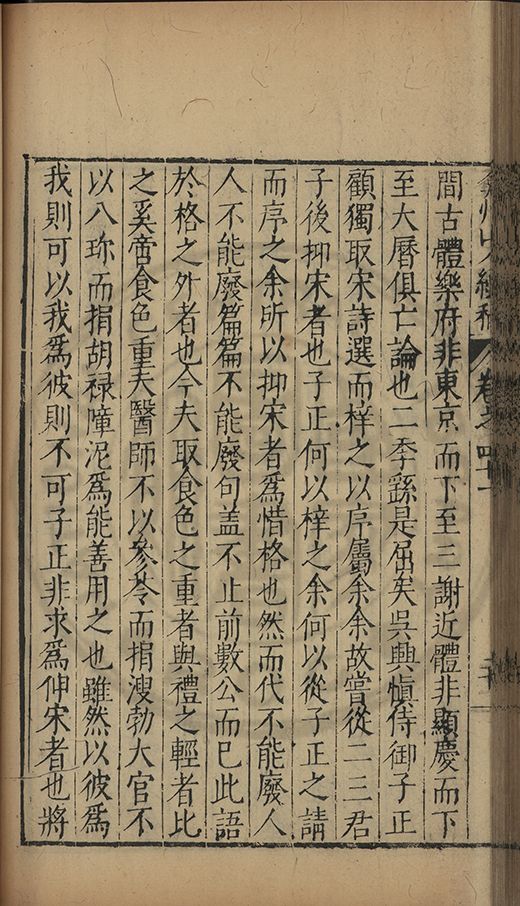 卷之四十一
間古體樂府非東京而下至三謝近體非顯慶而下
至大曆俱亡論也二季繇是屈矣吳興愼侍御子正
顧獨取宋詩選而梓之以序屬余余故嘗從二三君
子後抑宋者也子正何以梓之余何以從子正之請
而序之余所以抑宋者爲惜格也然而代不能廢人
人不能廢篇篇不能廢句蓋不止前數公而已此語
於格之外者也今夫取食色之重者與禮之輕者比
之奚啻食色重夫醫師不以參苓而捐溲勃大官不
以八珎而捐胡禄障泥爲能善用之也雖然以彼爲
我則可以我爲彼則不可子正非求爲伸宋者也將